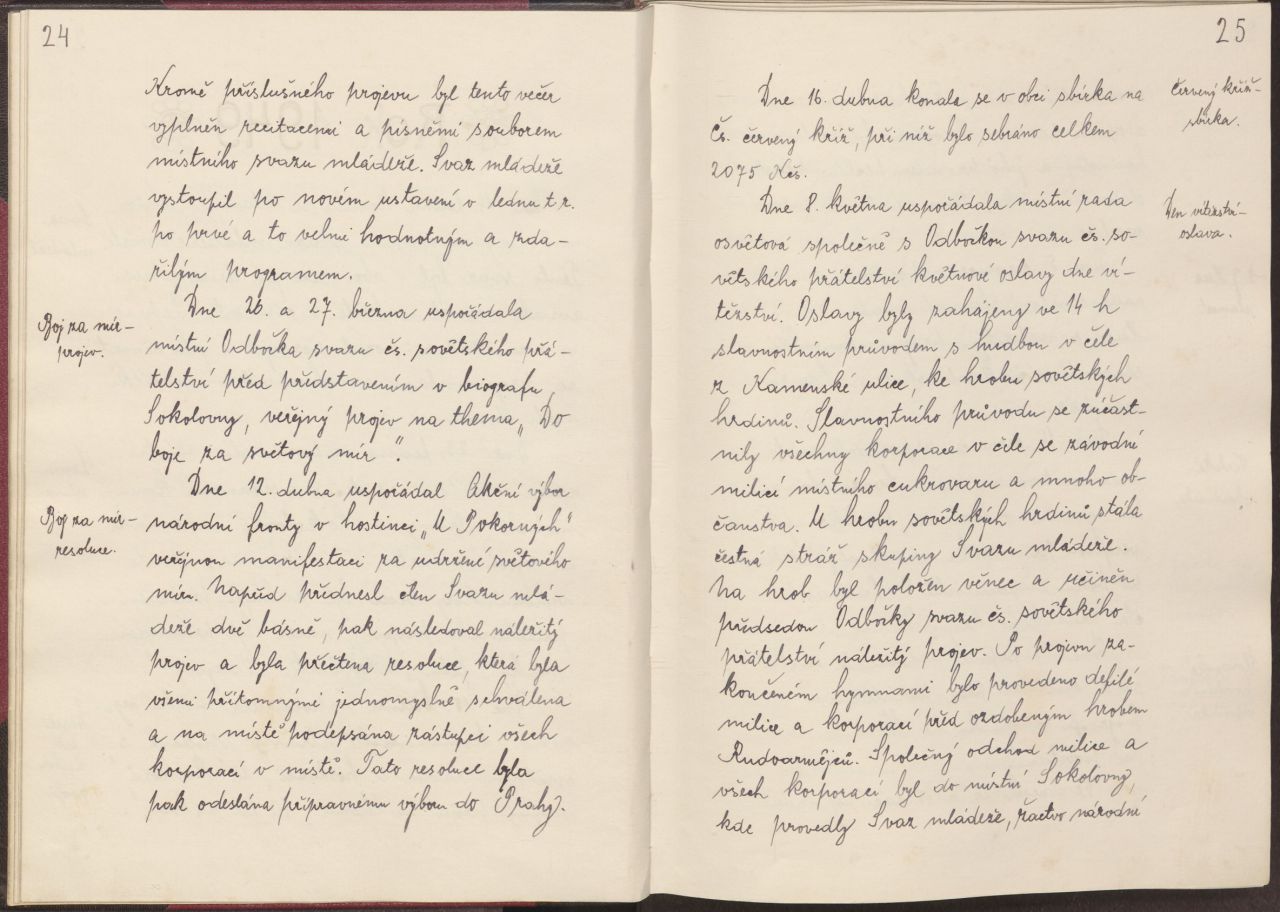 24
Kromě příslušného projevu byl tento večer
vyplněn recitacemi a písněmi souborem
místního svazu mládeže. Svaz mládeže
vystoupil po novém ustavení v lednu t.r.
po prvé a to velmi hodnotným a zda-
řilým programem.
Dne 26. a 27. března uspořádala
Boj za mír-
projev.
místní Odbočka svazu čs. sovětského přá-
telství před představením v biografu
Sokolovny, veřejný projev na thema „Do
boje za světový mír“.
Dne 12. dubna uspořádal Akční výbor
Boj za mír-
resoluce.
národní fronty v hostinci „U Pokorných“
veřejnou manifestaci za udržení světového
míru. Napřed přednesl člen Svazu mlá-
deže dvě básně, pak následoval náležitý
projev a byla přečtena resoluce, která byla
všemi přítomnými jednomyslně schválena
a na místě podepsána zástupci všech
korporací v místě. Tato resoluce byla
pak odeslána přípravnému výboru do Prahy.
25
Dne 16. dubna konala se v obci sbírka na
Červený kříž-
sbírka.
Čs. červený kříž, při níž bylo sebráno celkem
2075 Kčs.
Dne 8. května uspořádala místní rada
Den vítězství-
oslava.
osvětová společně s Odbočkou svazu čs. so-
větského přátelství květnové oslavy dne ví-
tězství. Oslavy byly zahájeny ve 14 h
slavnostním průvodem s hudbou v čele
z Kamenské ulice, ke hrobu sovětských
hrdinů. Slavnostního průvodu se zúčast-
nily všechny korporace v čele se závodní
milicí místního cukrovaru a mnoho ob-
čanstva. U hrobu sovětských hrdinů stála
čestná stráž skupiny Svazu mládeže.
Na hrob byl položen věnec a učiněn
předsedou Odbočky svazu čs. sovětského
přátelství náležitý projev. Po projevu za-
končeném hymnami bylo provedeno defilé
milice a korporací před ozdobeným hrobem
Rudoarmějců. Společný odchod milice a
všech korporací byl do místní Sokolovny,
kde provedly Svaz mládeže, žactvo národní